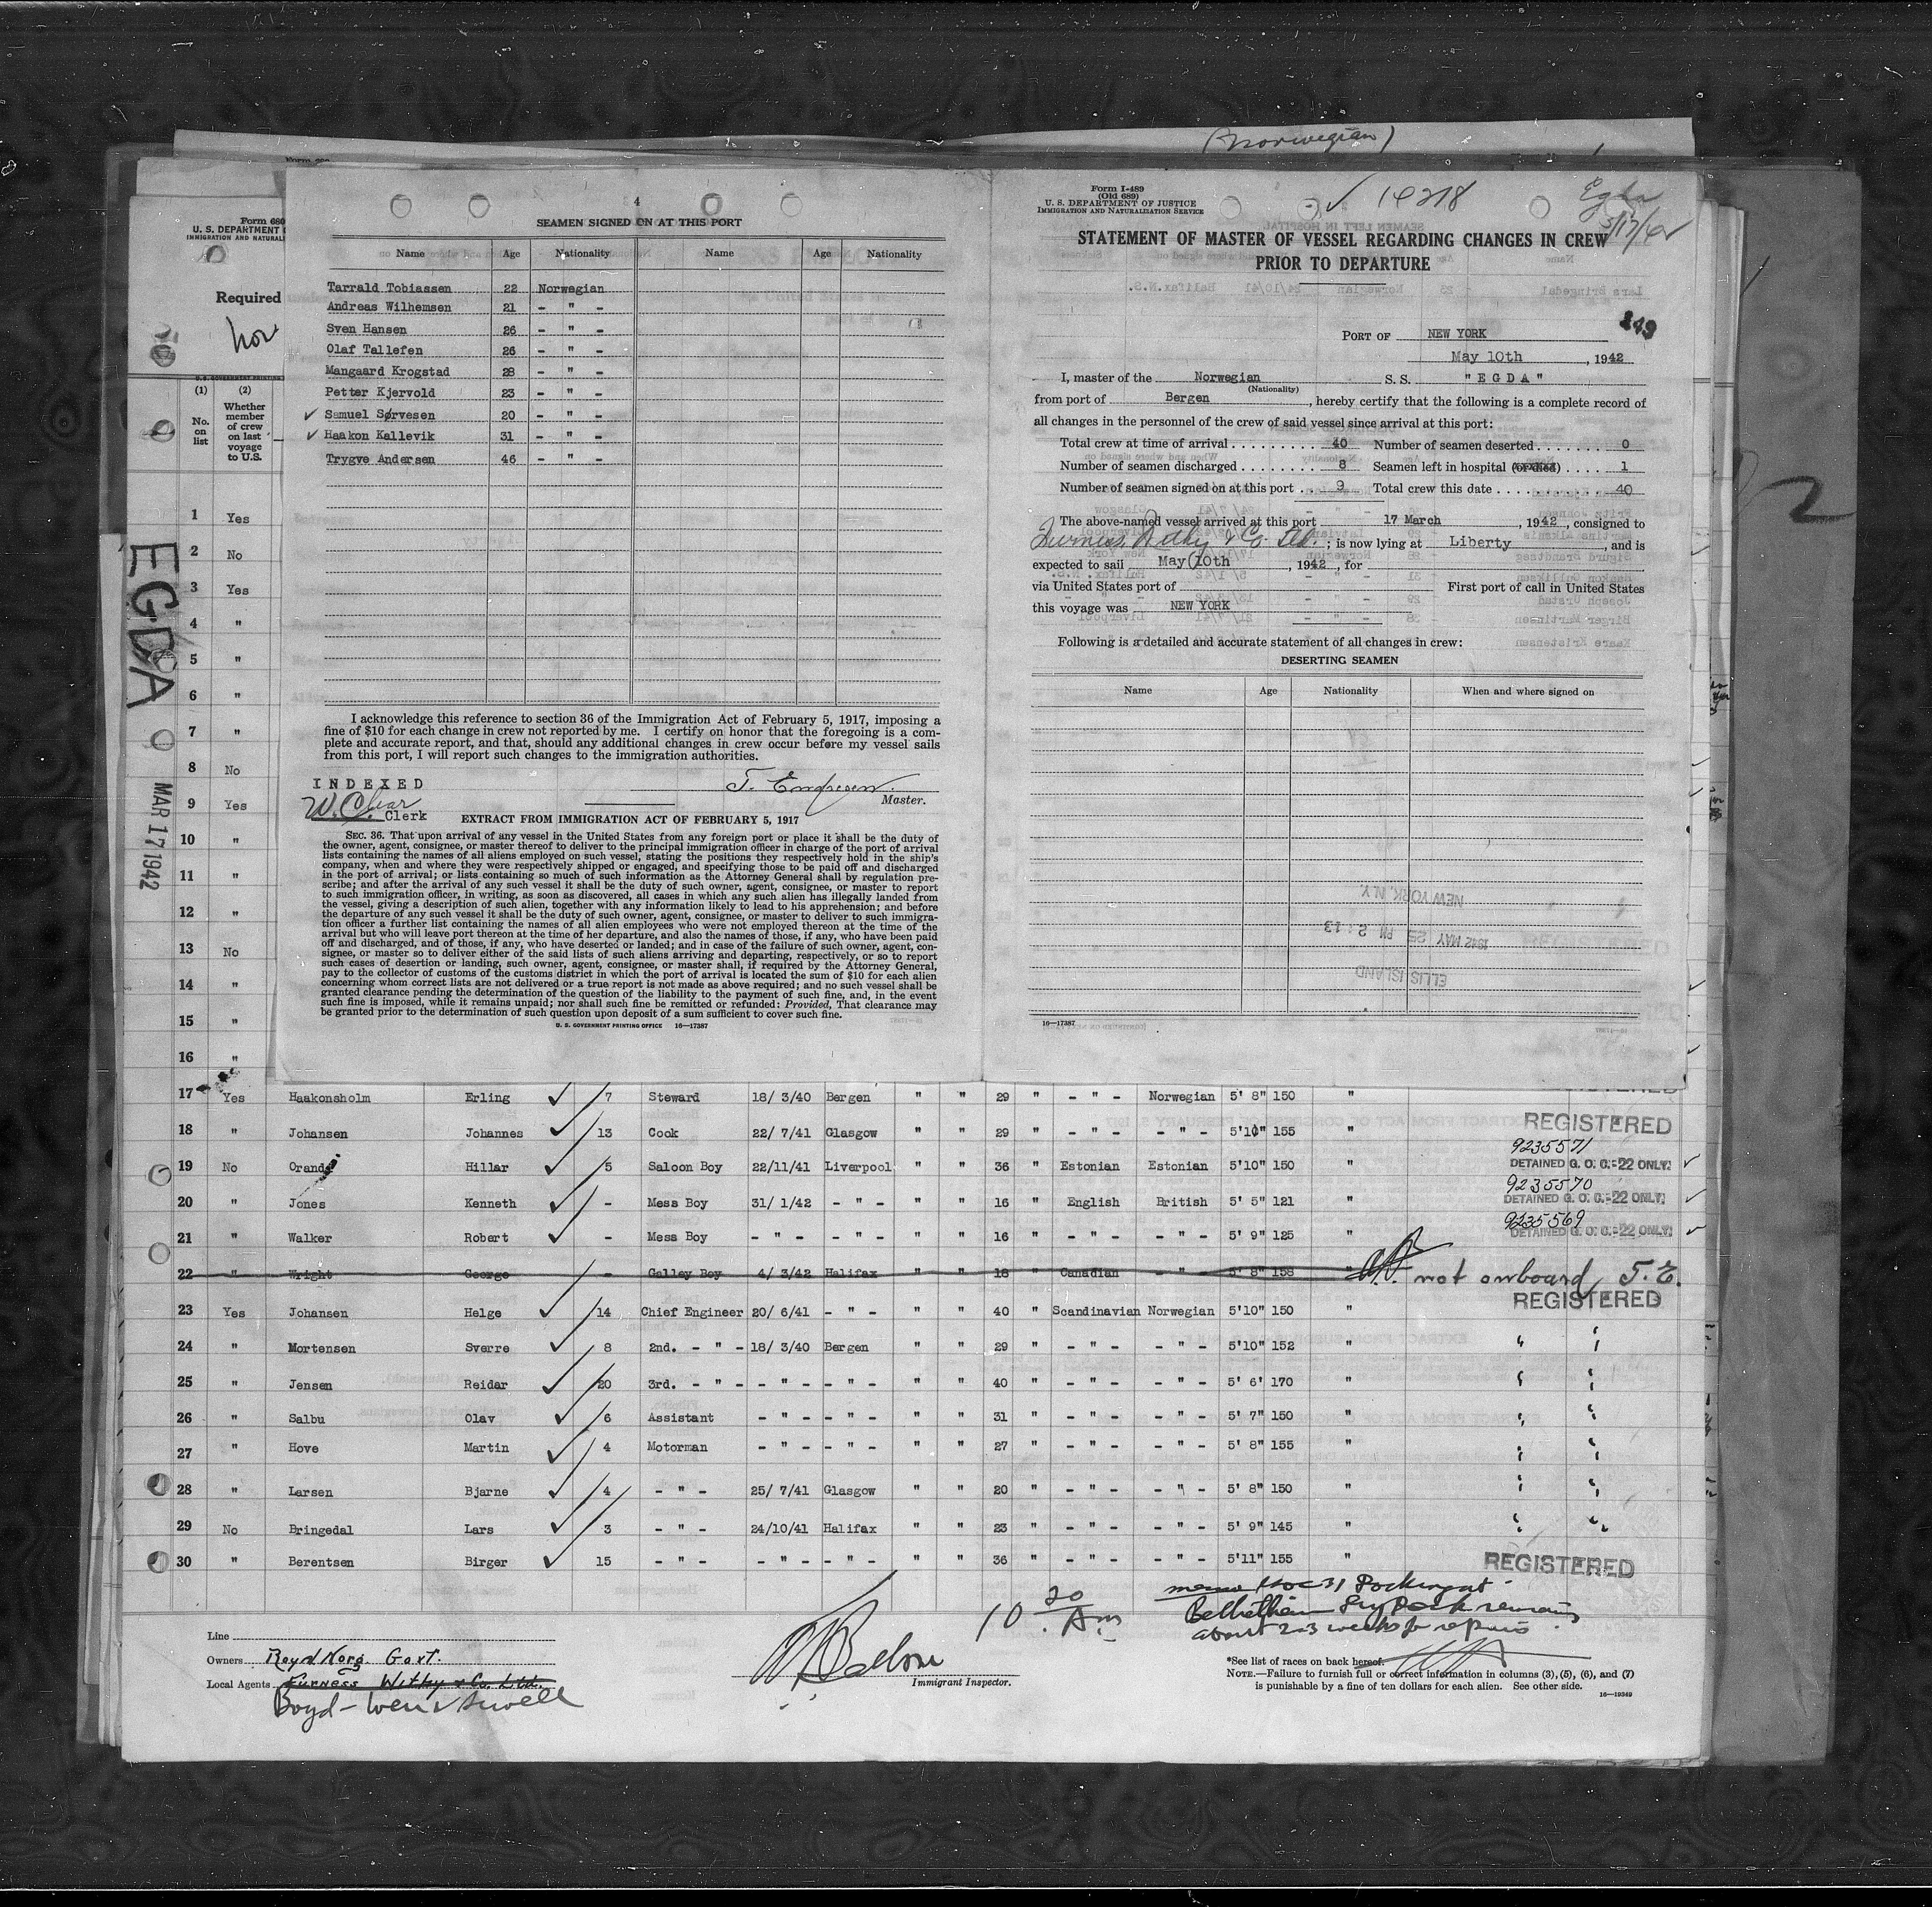 (Norwegian)
Form 680
U. S. DEPARTMENT
IMMIGRATION AND NATURALI
Required
Nor
(1) (2)
No. on list
Whether member of crew on last voyage to U.S.
1 Yes
2 No
3 Yes
4 "
5 "
6 "
7 "
8 No
9 Yes
10 "
11 "
12 "
13 No
14 "
15 "
16 "
EGDA
MAR 17 1942
4
SEAMEN SIGNED ON AT THIS PORT
Name Age Nationality Name Age Nationality
Tarrald Tobiassen 22 Norwegian
Andreas Wilhemsen 21 - " -
Sven Hansen 26 - " -
Olaf Tallefen 26 - " -
Mangaard Krogstad 28 - " -
Petter Kjervold 23 - " -
✓ Samuel Sørvesen 20 - " -
✓ Haakon Kallevik 31 - " -
Trygve Andersen 46 - " -
I acknowledge this reference to section 36 of the Immigration Act of February 5, 1917, imposing a
fine of $10 for each change in crew not reported by me. I certify on honor that the foregoing is a com-
plete and accurate report, and that, should any additional changes in crew occur before my vessel sails
from this port, I will report such changes to the immigration authorities.
INDEXED
Clerk
Master.
EXTRACT FROM IMMIGRATION ACT OF FEBRUARY 5, 1917
SEC. 36. That upon arrival of any vessel in the United States from any foreign port or place it shall be the duty of
the owner, agent, consignee, or master thereof to deliver to the principal immigration officer in charge of the port of arrival
lists containing the names of all aliens employed on such vessel, stating the positions they respectively hold in the ship's
company, when and where they were respectively shipped or engaged, and specifying those to be paid off and discharged
in the port of arrival; or lists containing so much of such information as the Attorney General shall by regulation pre-
scribe; and after the arrival of any such vessel it shall be the duty of such owner, agent, consignee, or master to report
to such immigration officer, in writing, as soon as discovered, all cases in which any such alien has illegally landed from
the vessel, giving a description of such alien, together with any information likely to lead to his apprehension; and before
the departure of any such vessel it shall be the duty of such owner, agent, consignee, or master to deliver to such immigra-
tion officer a further list containing the names of all alien employees who were not employed thereon at the time of the
arrival but who will leave port thereon at the time of her departure, and also the names of those, if any, who have been paid
off and discharged, and of those, if any, who have deserted or landed; and in case of the failure of such owner, agent, con-
signee, or master so to deliver either of the said lists of such aliens arriving and departing, respectively, or so to report
such cases of desertion or landing, such owner, agent, consignee, or master shall, if required by the Attorney General,
pay to the collector of customs of the customs district in which the port of arrival is located the sum of $10 for each alien
concerning whom correct lists are not delivered or a true report is not made as above required; and no such vessel shall be
granted clearance pending the determination of the question of the liability to the payment of such fine, and, in the event
such fine is imposed, while it remains unpaid; nor shall such fine be remitted or refunded: Provided, That clearance may
be granted prior to the determination of such question upon deposit of a sum sufficient to cover such fine.
U. S. GOVERNMENT PRINTING OFFICE 16—17387
Form I-489
(Old 689)
U. S. DEPARTMENT OF JUSTICE
IMMIGRATION AND NATURALIZATION SERVICE
✓ 14218
Egda
3/17/42
STATEMENT OF MASTER OF VESSEL REGARDING CHANGES IN CREW
PRIOR TO DEPARTURE
PORT OF NEW YORK
May 10th, 1942
I, master of the Norwegian S. S. "EGDA"
(Nationality)
from port of Bergen, hereby certify that the following is a complete record of
all changes in the personnel of the crew of said vessel since arrival at this port:
Total crew at time of arrival 40 Number of seamen deserted 0
Number of seamen discharged 8 Seamen left in hospital (or died) 1
Number of seamen signed on at this port 9 Total crew this date 40
The above-named vessel arrived at this port 17 March, 1942, consigned to
Furness Withy & Co. Ltd.; is now lying at Liberty, and is
expected to sail May 10th, 1942, for
via United States port of First port of call in United States
this voyage was NEW YORK
Following is a detailed and accurate statement of all changes in crew:
DESERTING SEAMEN
Name Age Nationality When and where signed on
NEW YORK, N.Y.
1942 MAY 25 PM 2:13
ELLIS ISLAND
16—17387
17 Yes Haakonsholm Erling ✓ 7 Steward 18/ 3/40 Bergen " " 29 " - " - Norwegian 5' 8" 150 "
18 " Johansen Johannes ✓ 13 Cook 22/ 7/41 Glasgow " " 29 " - " - - " - 5'10" 155 " REGISTERED
9235571
19 No Orand Hillar ✓ 5 Saloon Boy 22/11/41 Liverpool " " 36 " Estonian Estonian 5'10" 150 " DETAINED G. O. C.-22 ONLY. ✓
9235570
20 " Jones Kenneth ✓ - Mess Boy 31/ 1/42 - " - " " 16 " English British 5' 5" 121 " DETAINED G. O. C.-22 ONLY. ✓
9235569
21 " Walker Robert ✓ - Mess Boy - " - - " - " " 16 " - " - - " - 5' 9" 125 " DETAINED G. O. C.-22 ONLY. ✓
22 " Wright George - Galley Boy 4/ 3/42 Halifax " " 18 " Canadian - " - 5' 8" 158 " not onboard T. E.
23 Yes Johansen Helge ✓ 14 Chief Engineer 20/ 6/41 - " - " " 40 " Scandinavian Norwegian 5'10" 150 " REGISTERED
24 " Mortensen Sverre ✓ 8 2nd. - " - 18/ 3/40 Bergen " " 29 " - " - - " - 5'10" 152 "
25 " Jensen Reidar ✓ 20 3rd. - " - - " - - " - " " 40 " - " - - " - 5' 6' 170 "
26 " Salbu Olav ✓ 6 Assistant - " - - " - " " 31 " - " - - " - 5' 7" 150 "
27 " Hove Martin ✓ 4 Motorman - " - - " - " " 27 " - " - - " - 5' 8" 155 "
28 " Larsen Bjarne ✓ 4 - " - 25/ 7/41 Glasgow " " 20 " - " - - " - 5' 8" 150 "
29 No Bringedal Lars ✓ 3 - " - 24/10/41 Halifax " " 23 " - " - - " - 5' 9" 145 "
30 " Berentsen Birger ✓ 15 - " - - " - - " - " " 36 " - " - - " - 5'11" 155 " REGISTERED
10 20 Am
about 2-3 weeks for repairs
Line
Owners Royal Norg. Govt.
Local Agents Furness Withy & Co. Ltd.
Boyd - Weir & Sewell
Immigrant Inspector.
*See list of races on back hereof.
NOTE.—Failure to furnish full or correct information in columns (3), (5), (6), and (7)
is punishable by a fine of ten dollars for each alien. See other side.
16—19349